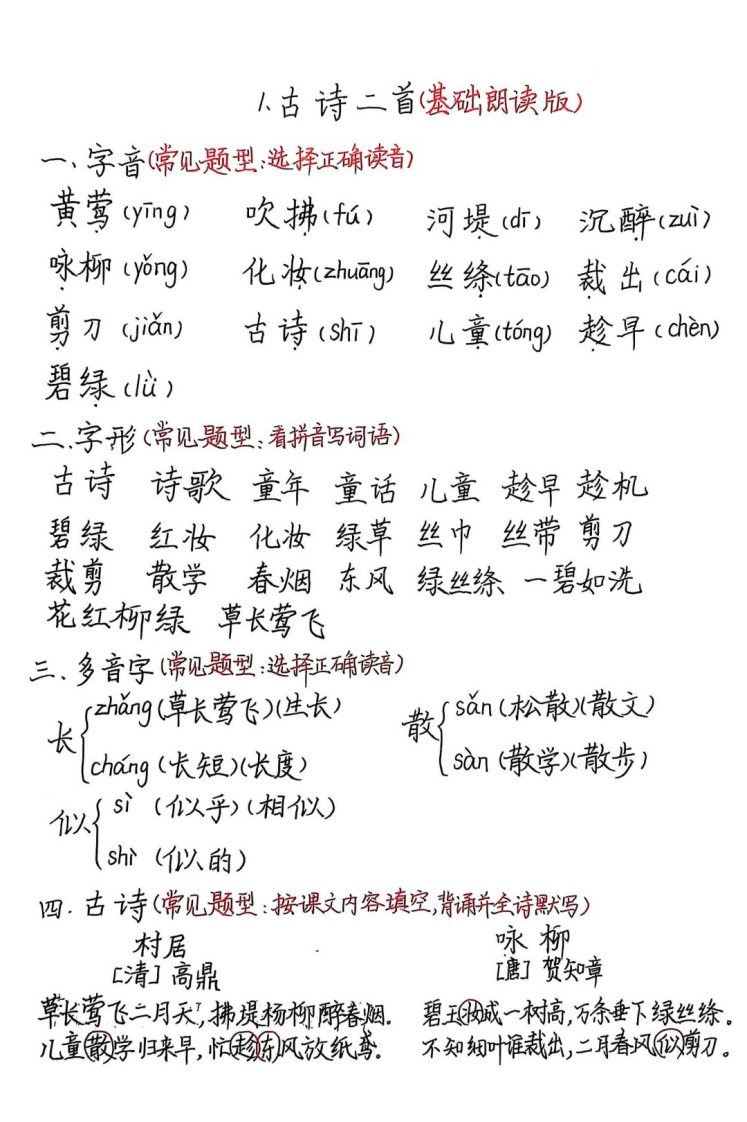 1.古诗二首(基础朗读版)
一、字音(常见题型:选择正确读音)
黄莺(yīng) 吹拂(fú) 河堤(dī) 沉醉(zuì)
咏柳(yǒng) 化妆(zhuāng) 丝绦(tāo) 裁出(cái)
剪刀(jiǎn) 古诗(shī) 儿童(tóng) 趁早(chèn)
碧绿(lǜ)
二.字形(常见题型:看拼音写词语)
古诗 诗歌 童年 童话 儿童 趁早 趁机
碧绿 红妆 化妆 绿草 丝巾 丝带 剪刀
裁剪 散学 春烟 东风 绿丝绦 一碧如洗
花红柳绿 草长莺飞
三、多音字(常见题型:选择正确读音)
长
zhǎng(草长莺飞)(生长)
cháng(长短)(长度)
散
sǎn(松散)(散文)
sàn(散学)(散步)
似
sì(似乎)(相似)
shì(似的)
四.古诗(常见题型:按课文内容填空,背诵并全诗默写)
村居
[清]高鼎
草长莺飞二月天,拂堤杨柳醉春烟.
儿童散学归来早,忙趁东风放纸鸢.
咏柳
[唐]贺知章
碧玉妆成一树高,万条垂下绿丝绦。
不知细叶谁裁出,二月春风似剪刀。